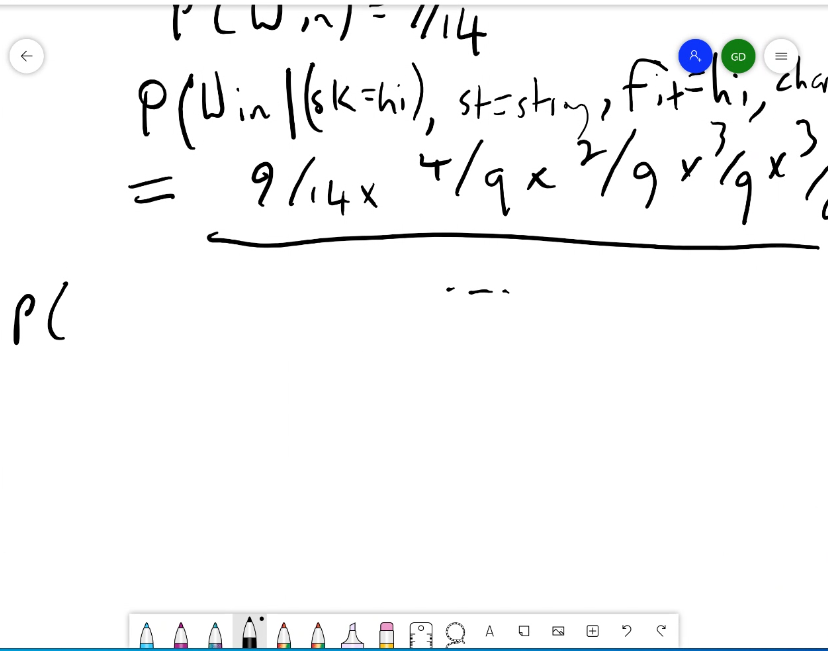 P(Win) = 9/14
P(Win|(sk=hi), st=strong, Fit=hi, char
= 9/14 x 4/9 x 2/9 x 3/9 x 3/
...
P(
GD
A